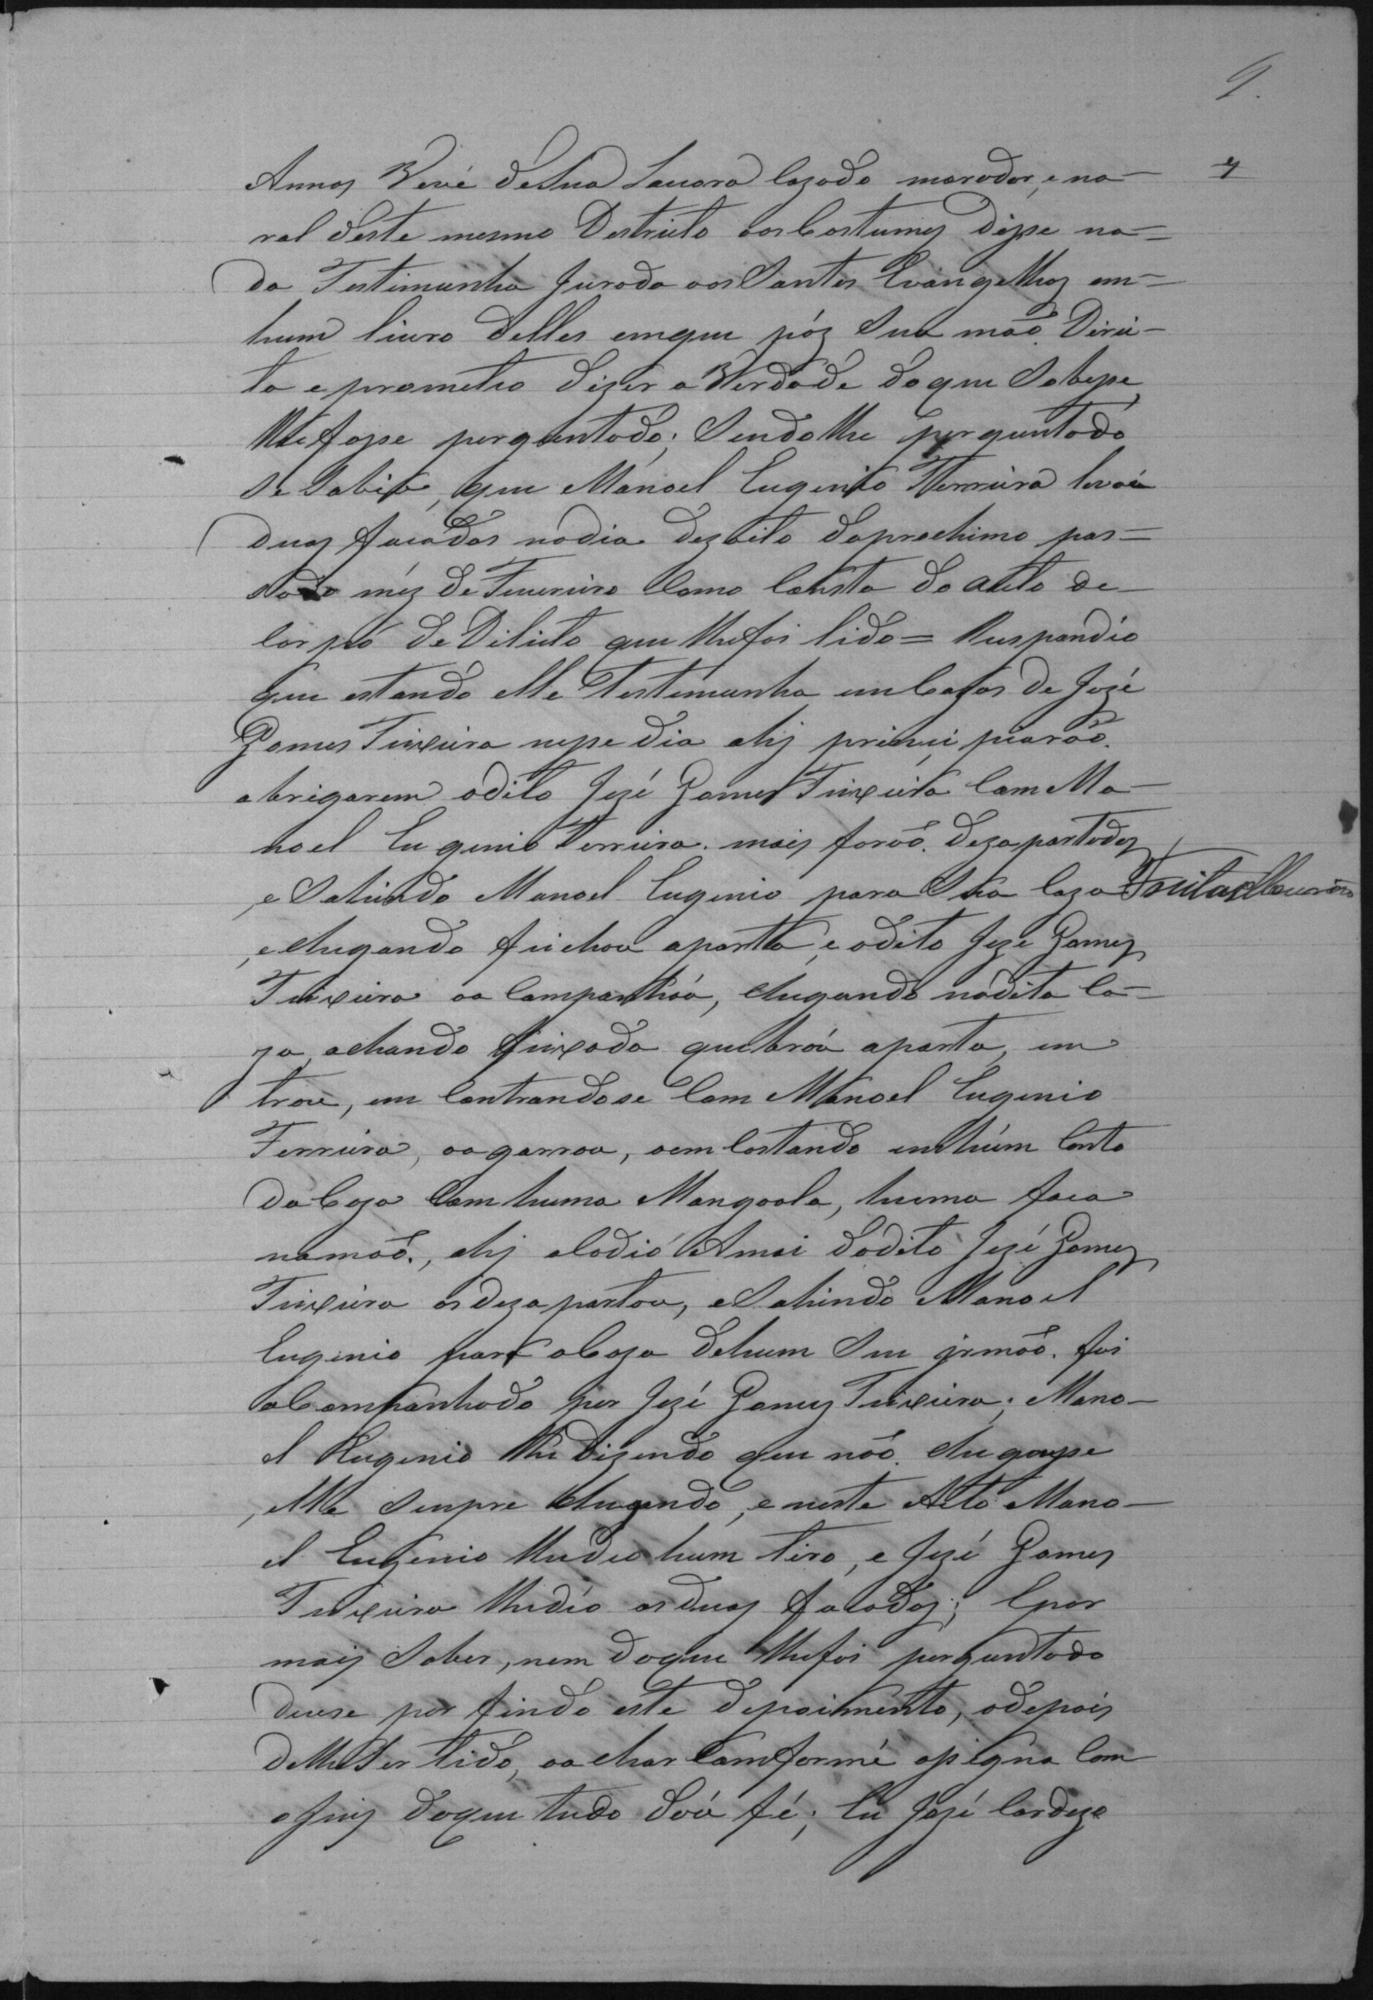 9.
7
Annos Vevé de Sua Lauora Cazado morador, e na-
ral deste mesmo Destricto aos Costumes disse na-
da Testimunha Jurada aos Santos Evangelhos em-
hum livro delles emque pôz Sua mão Direi-
ta e prometeo dizer a Verdade doque Sobesse
lhefosse perguntado; Sendolhe perguntado
Se Sabia, que Manoel Eugenio Ferreira levou
duas facadas nodia dezoito doprochimo pas-
sado mêz de Feuereiro Como Consta do auto de
Corpo de Delicto que lhefoi lido = Respondeo
que estando elle Testemunha em Cazas de José
Gomes Teixeira nesse dia ahj principiarão
abrigarem odito José Gomes Teixeira Com Ma-
noel Eugenio Ferreira. mais forão dezapartados
e Sahindo Manoel Eugenio para Sua Caza Freitas Mourão
, e chegando feichou aporta, e odito José Gomes
Teixeira oa Companhóu, chegando nadita Ca-
za, achando feixada quebróu aporta, en
trou, en Contrandose Com Manoel Eugenio
Ferreira, oagarrou, oemCostando emhúm Canto
daCaza Com huma Mangoala, huma faca
namão, ahj alodio Amai dodito José Gomes
Teixeira osdezapartou, eSahindo Manoel
Eugenio para aCaza dehum Seu irmão. foi
aCompanhado por José Gomes Teixeira; Mano-
el Eugenio lhe Dizendo que não chegasse
, elle Senpre chegando, e neste Acto Mano-
el Eugenio lhedeo hum tiro, e José Gomes
Teixeira lhedeo as duas facadas; Epor
mais Saber, nem doque lhefoi perguntado
deuse por findo este depoimento, odepois
delheSer lido, oachar Comforme assigna Com
oJuiz doque tudo Dou fé; Eu José Cardozo